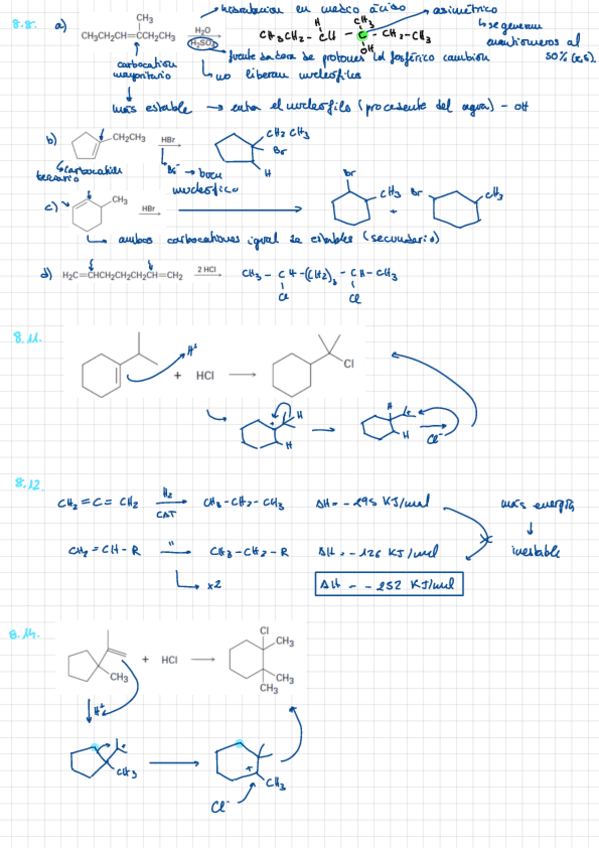 8.8. a) CH₃CH₂CH=CCH₂CH₃ CH₃ H₂O H₂SO₄ hidratación en medio ácido
CH₃CH₂ - CH - C - CH₂-CH₃ H CH₃ OH asimétrico
se generan enantiómeros al 50% (R,S).
carbocatión mayoritario
fuente dadora de protones (d fosfórico también
no liberan nucleófilos
más estable → entra el nucleófilo (procedente del agua) - OH
b) CH₂CH₃ HBr CH₂CH₃ Br H
carbocatión terciario
Br⁻ → buen nucleófilo
c) CH₃ HBr Br CH₃ + Br CH₃
ambos carbocationes igual de estables (secundario)
d) H₂C=CHCH₂CH₂CH₂CH=CH₂ 2 HCl CH₃ - CH-(CH₂)₃ - CH-CH₃
Cl Cl
8.11. H⁺
+ HCl Cl
H H H Cl⁻
8.12.
CH₂=C=CH₂ H₂ CAT CH₃-CH₂-CH₃ ΔH=-295 KJ/mol más energía
CH₂=CH-R " CH₃-CH₂-R ΔH=-126 KJ/mol inestable
x2 ΔH = -252 KJ/mol
8.14. Cl CH₃
+ HCl
CH₃ CH₃
CH₃
H⁺
CH₃ + CH₃
Cl⁻